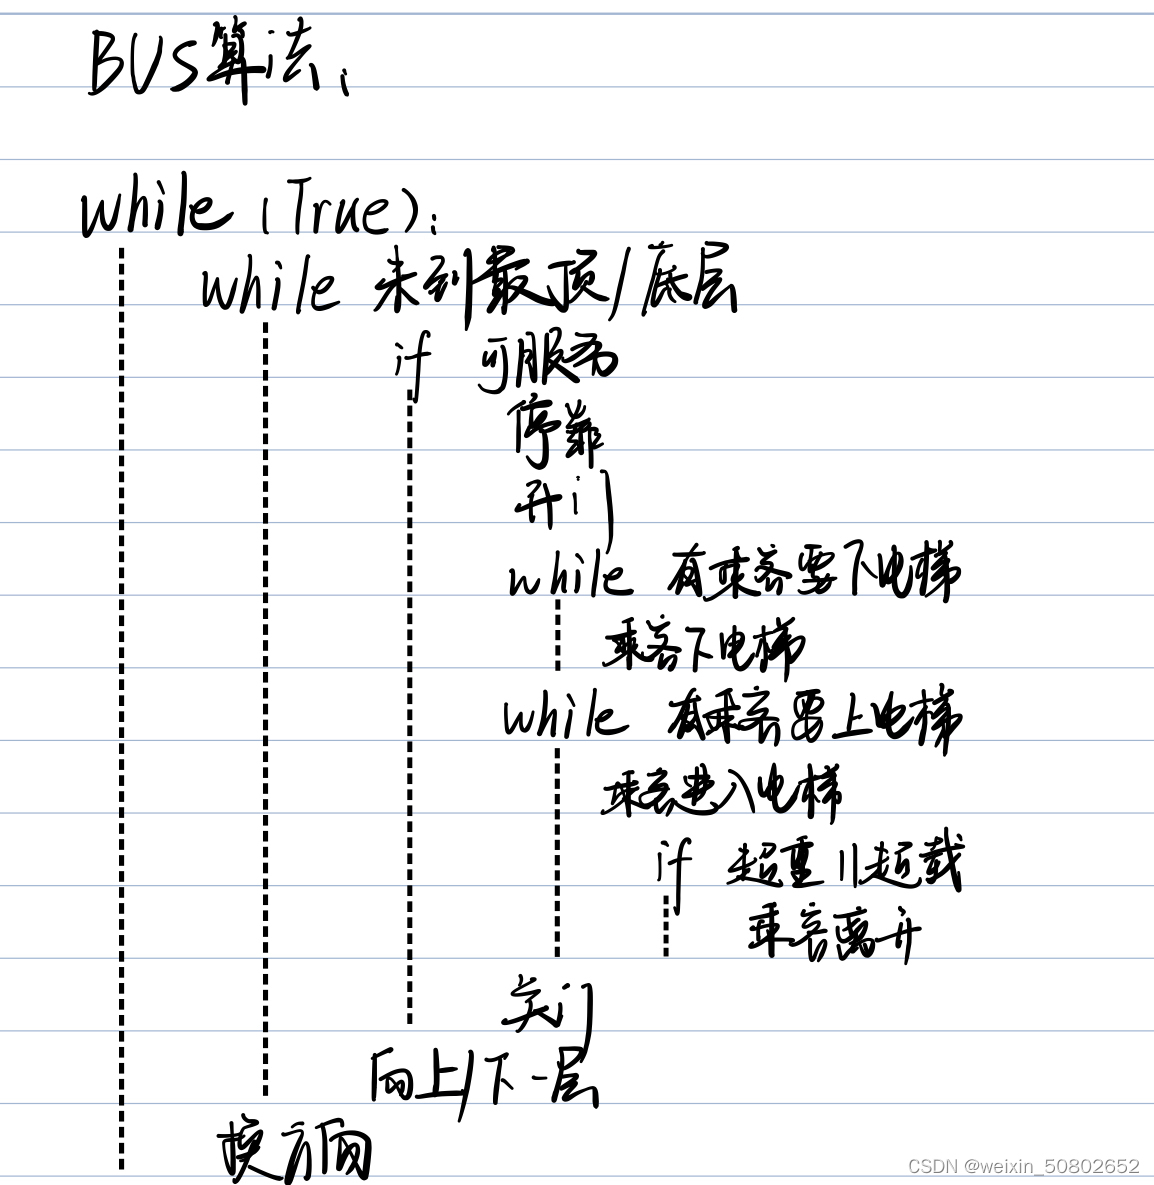 BUS算法:
while (True):
while 未到最顶/底层
if 可服务
停靠
开门
while 有乘客要下电梯
乘客下电梯
while 有乘客要上电梯
乘客进入电梯
if 超重||超载
乘客离开
关门
向上/下一层
换方向
CSDN @weixin_50802652